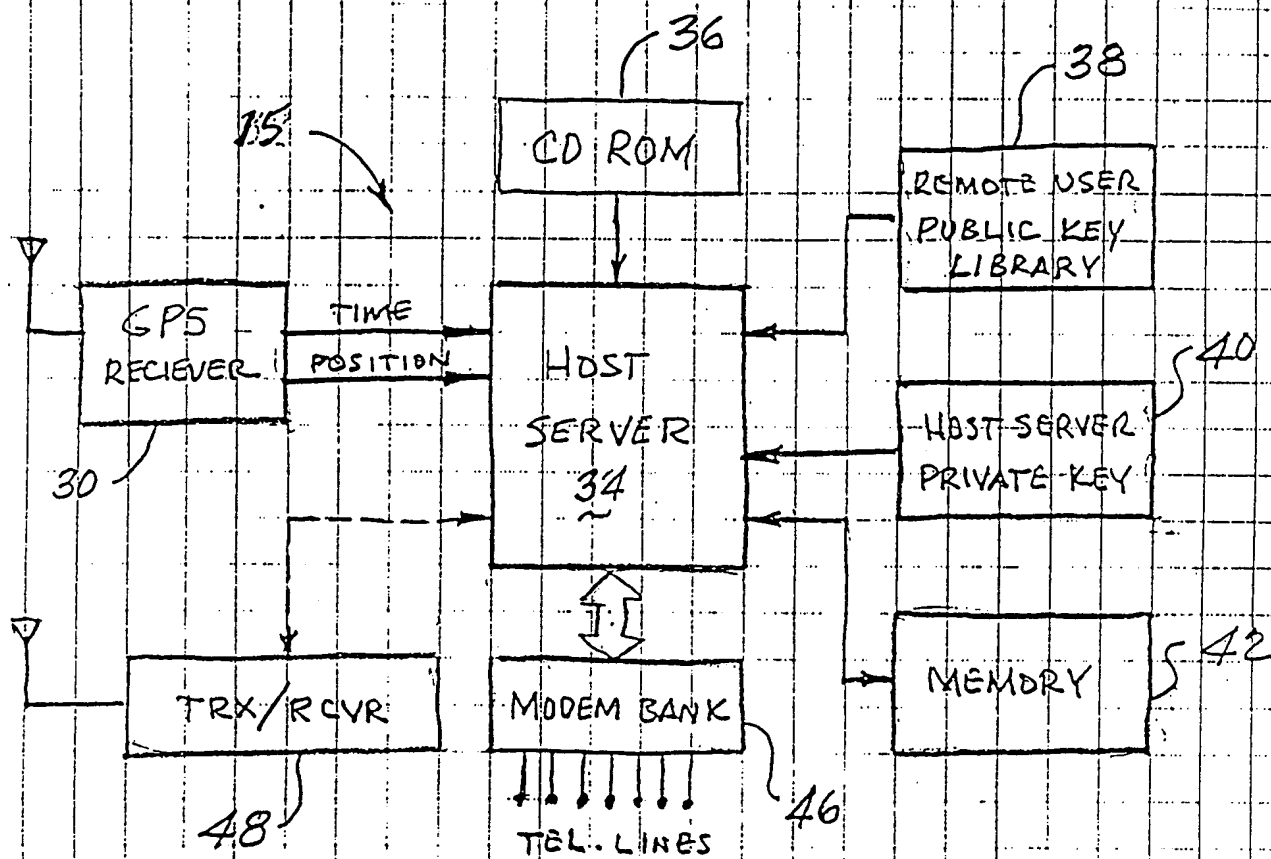 36
38
15
CD ROM
REMOTE USER
PUBLIC KEY
LIBRARY
GPS
RECIEVER
TIME
POSITION
HOST
SERVER
34
40
HOST SERVER
PRIVATE KEY
30
TRX/RCVR
MODEM BANK
MEMORY
42
48
46
TEL. LINES